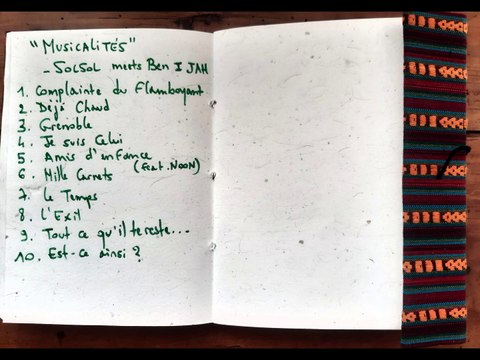 "MUSICALITÉS"
- SOLSOL meets Ben I JAH
1. Complainte du Flamboyant
2. Déjà Chaud
3. Grenoble
4. Je suis Celui
5. Amis d'enfance
6. Mille Carnets (feat. NOON)
7. Le Temps
8. L'Exil
9. Tout ce qu'il te reste...
10. Est-ce ainsi ?